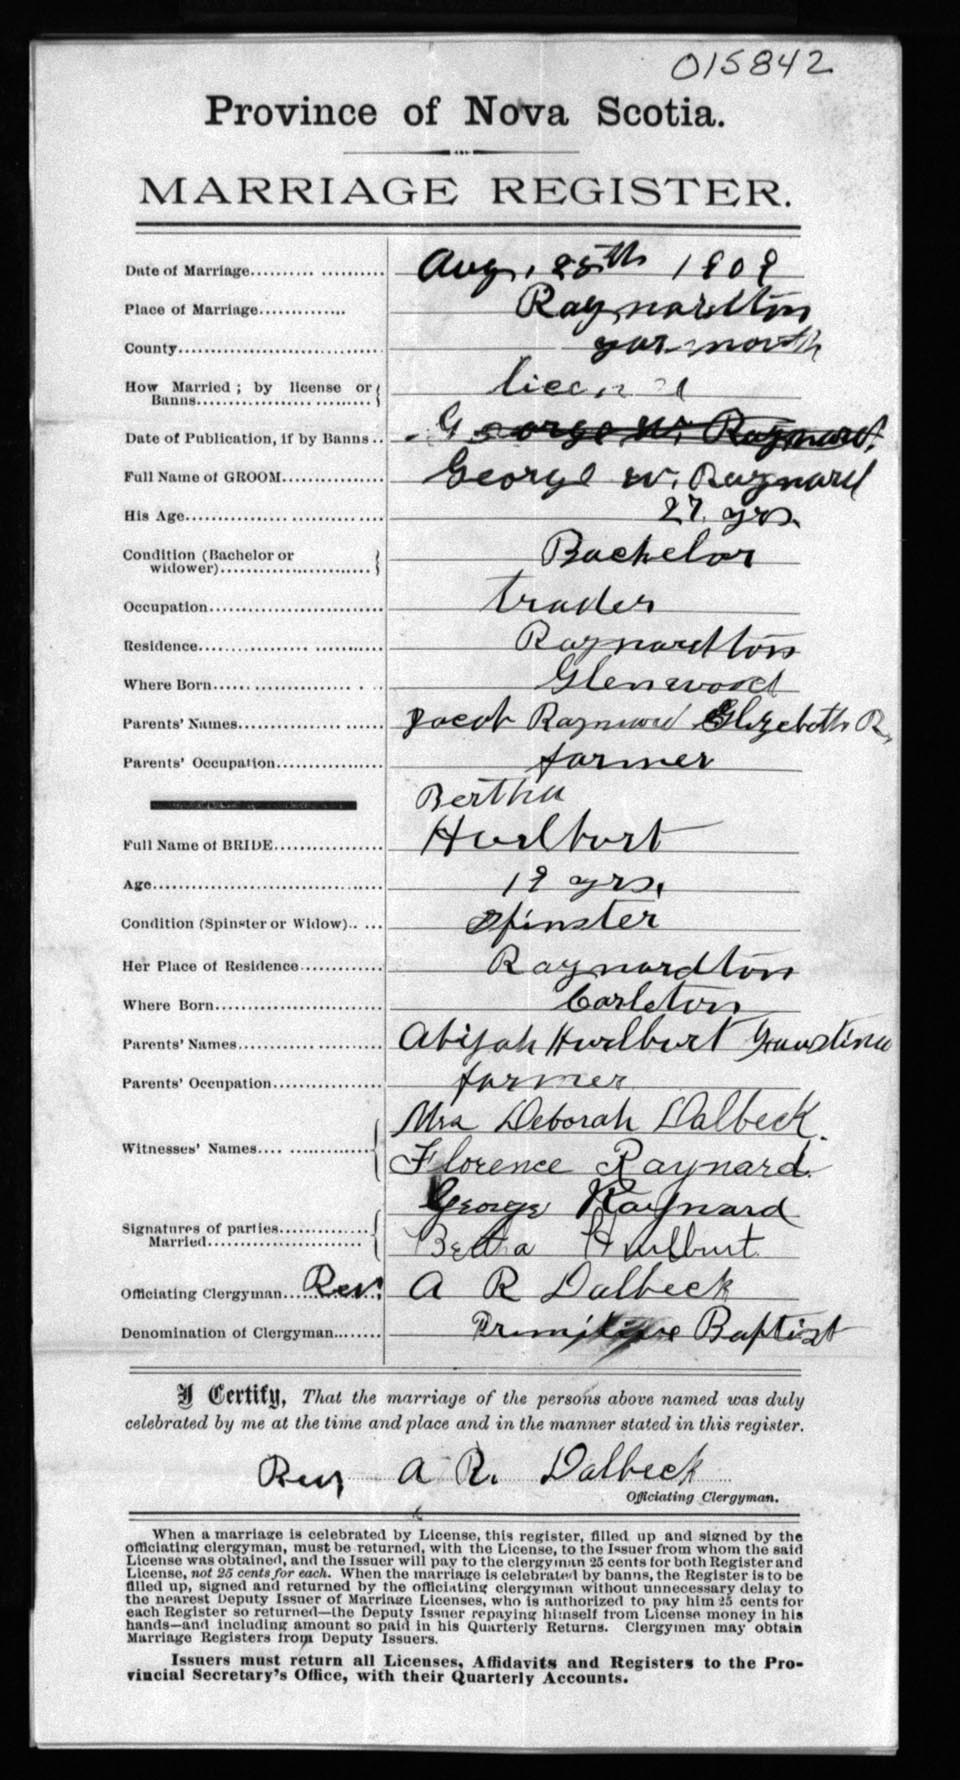 015842
Province of Nova Scotia.
MARRIAGE REGISTER.
Date of Marriage Aug. 25th 1909
Place of Marriage Raynardton
County yarmouth
How Married; by license or
Banns license
Date of Publication, if by Banns George W. Raynard
Full Name of GROOM George W. Raynard
His Age 27 yrs.
Condition (Bachelor or
widower) Bachelor
Occupation trader
Residence Raynardton
Where Born Glenwood
Parents' Names Jacob Raynard Elizebeth R,
Parents' Occupation farmer
Bertha
Full Name of BRIDE Hurlburt
Age 19 yrs,
Condition (Spinster or Widow) Spinster
Her Place of Residence Raynardton
Where Born Carleton
Parents' Names Abijah Hurlburt
Parents' Occupation farmer
Mrs Deborah Dalbeck.
Witnesses' Names Florence Raynard.
George Raynard
Signatures of parties
Married Bertha Hurlburt
Officiating Clergyman Rev. A R Dalbeck
Denomination of Clergyman Primitive Baptist
I Certify, That the marriage of the persons above named was duly
celebrated by me at the time and place and in the manner stated in this register.
Rev A R. Dalbeck
Officiating Clergyman.
When a marriage is celebrated by License, this register, filled up and signed by the
officiating clergyman, must be returned, with the License, to the Issuer from whom the said
License was obtained, and the Issuer will pay to the clergyman 25 cents for both Register and
License, not 25 cents for each. When the marriage is celebrated by banns, the Register is to be
filled up, signed and returned by the officiating clergyman without unnecessary delay to
the nearest Deputy Issuer of Marriage Licenses, who is authorized to pay him 25 cents for
each Register so returned—the Deputy Issuer repaying himself from License money in his
hands—and including amount so paid in his Quarterly Returns. Clergymen may obtain
Marriage Registers from Deputy Issuers.
Issuers must return all Licenses, Affidavits and Registers to the Pro-
vincial Secretary's Office, with their Quarterly Accounts.